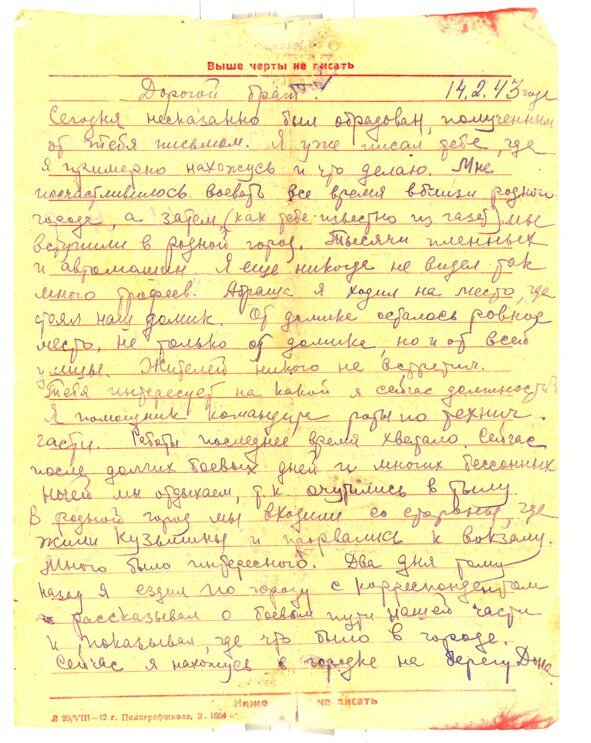 Выше черты не писать
Дорогой брат! 14.2.43 года
Сегодня несказанно был обрадован, полученным
от тебя письмом. Я уже писал тебе, где
я примерно нахожусь и что делаю. Мне
посчастливилось воевать все время вблизи родного
города, а затем, (как тебе известно из газет) мы
вступили в родной город. Тысячи пленных
и автомашин. Я еще никогда не видел так
много трофеев. Абраша я ходил на место, где
стоял наш домик. От домика осталось ровное
место, не только от домика, но и от всей
улицы. Жителей никого не встретил.
Тебя интересует на какой я сейчас должности?
Я помощник командира роты по технич.
части. Работы последнее время хватало. Сейчас
после долгих боевых дней и многих бессонных
ночей мы отдыхаем, т.к. очутились в тылу.
В родной город мы входили со стороны, где
жили Кузьмины и прорвались к вокзалу.
Много было интересного. Два дня тому
назад я ездил по городу с корреспондентом
и рассказывал о боевом пути нашей части
и показывал, где что было в городе.
Сейчас я нахожусь в городке на берегу Дона
Ниже не писать
Л 20/VIII—42 г. Полиграфшкола, З. 1684